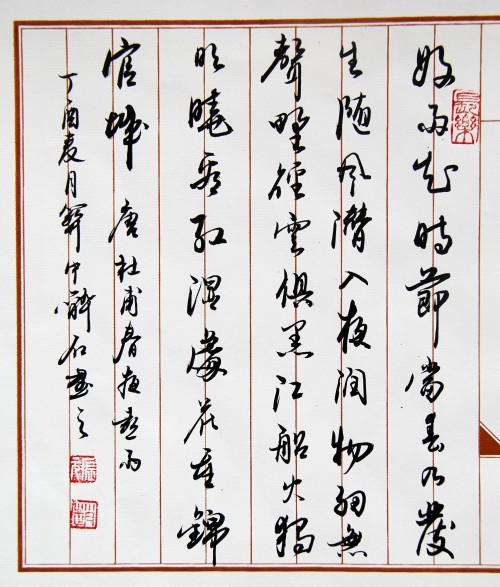 長樂
好雨知時節當春乃發
生随风潛入夜潤物細無
聲野徑雲俱黑江船火獨
明曉看紅湿處花重錦
官城 唐杜甫春夜喜雨
丁酉夏月中醉石書之